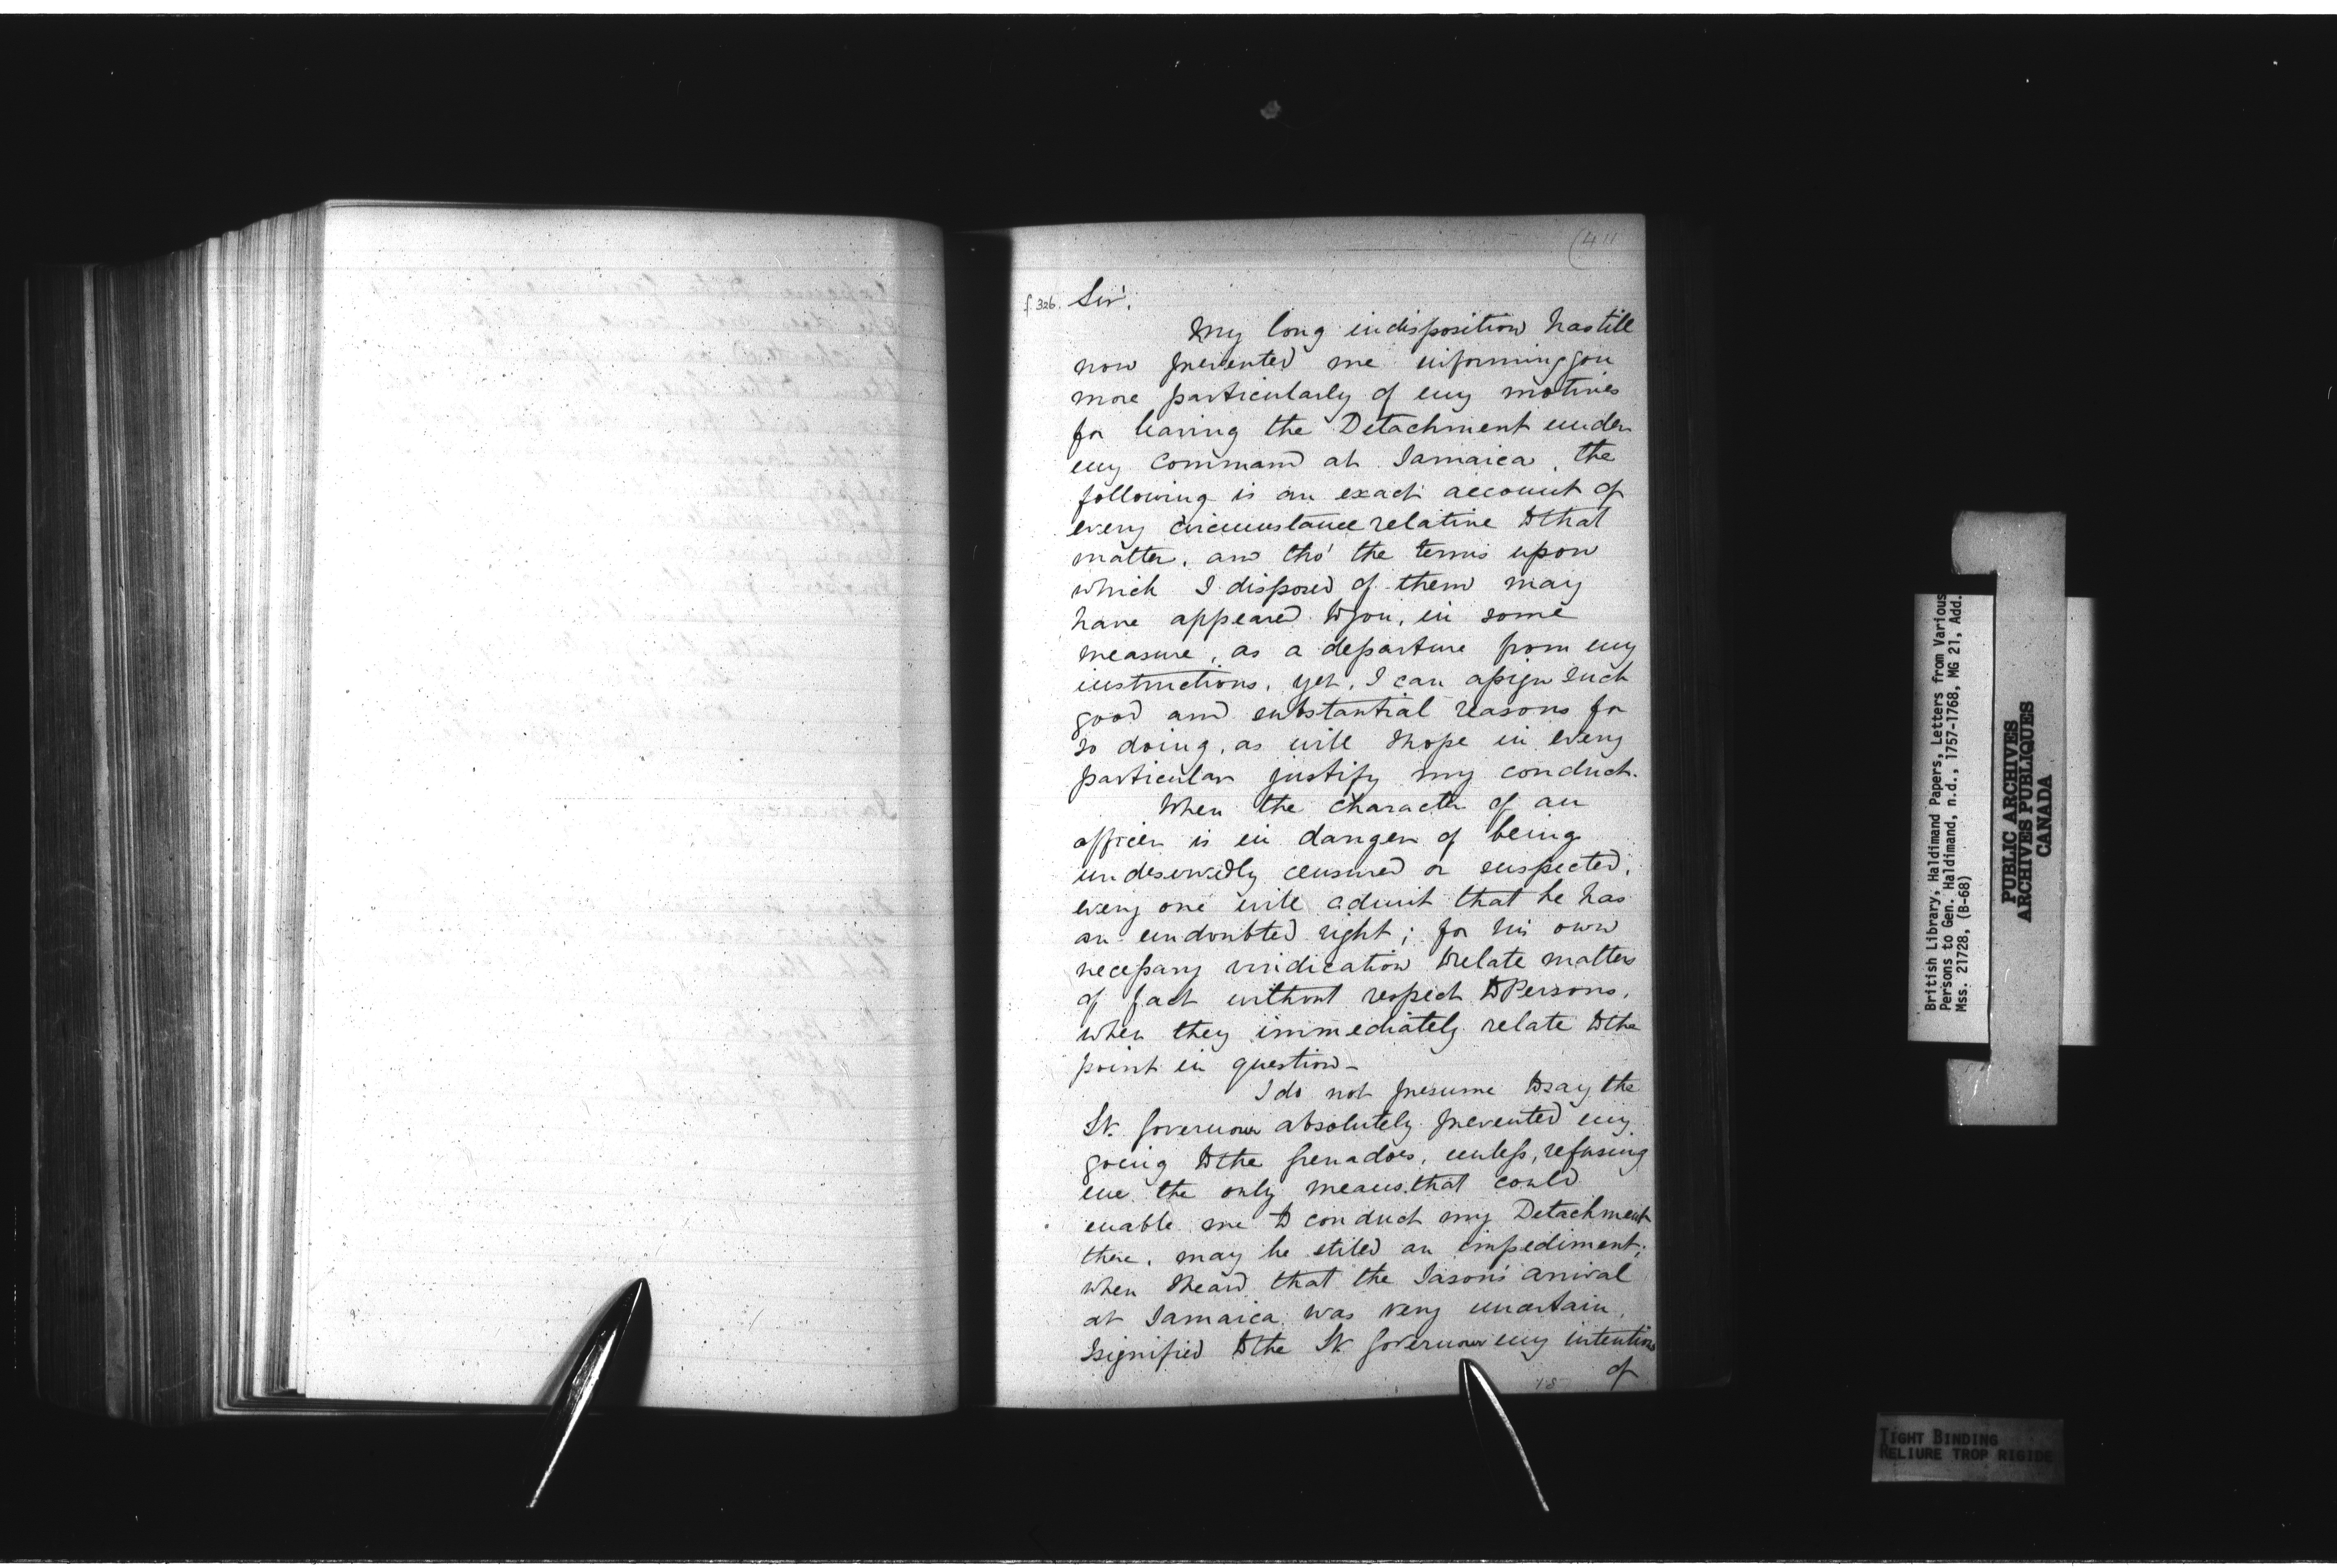 (411
f. 326. Sir,
My long indisposition has till
now prevented me informing you
more particularly of my motives
for leaving the Detachment under
my Command at Jamaica, the
following is an exact account of
every circumstance relative to that
matter, and tho' the terms upon
which I disposed of them may
have appeared to you, in some
measure, as a departure from my
instructions, yet, I can assign such
good and substantial reasons for
so doing, as will I hope in every
particular justify my conduct.
When the character of an
officer is in danger of being
undeservedly censured or suspected,
every one will admit that he has
an undoubted right; for his own
necessary vindication to relate matters
of fact without respect to Persons,
when they immediately relate to the
point in question -
I do not presume to say the
Lt. Governour absolutely prevented my
going to the Grenadoes, unless, refusing
me the only means that could
enable me to conduct my Detachment
there, may be stiled an impediment;
when I heard that the Jason's arrival
at Jamaica was very uncertain,
I signified to the Lt. Governour my intention
of
18
British Library, Haldimand Papers, Letters from Various
Persons to Gen. Haldimand, n.d., 1757-1768, MG 21, Add.
Mss. 21728, (B-68)
PUBLIC ARCHIVES
ARCHIVES PUBLIQUES
CANADA
TIGHT BINDING
RELIURE TROP RIGIDE